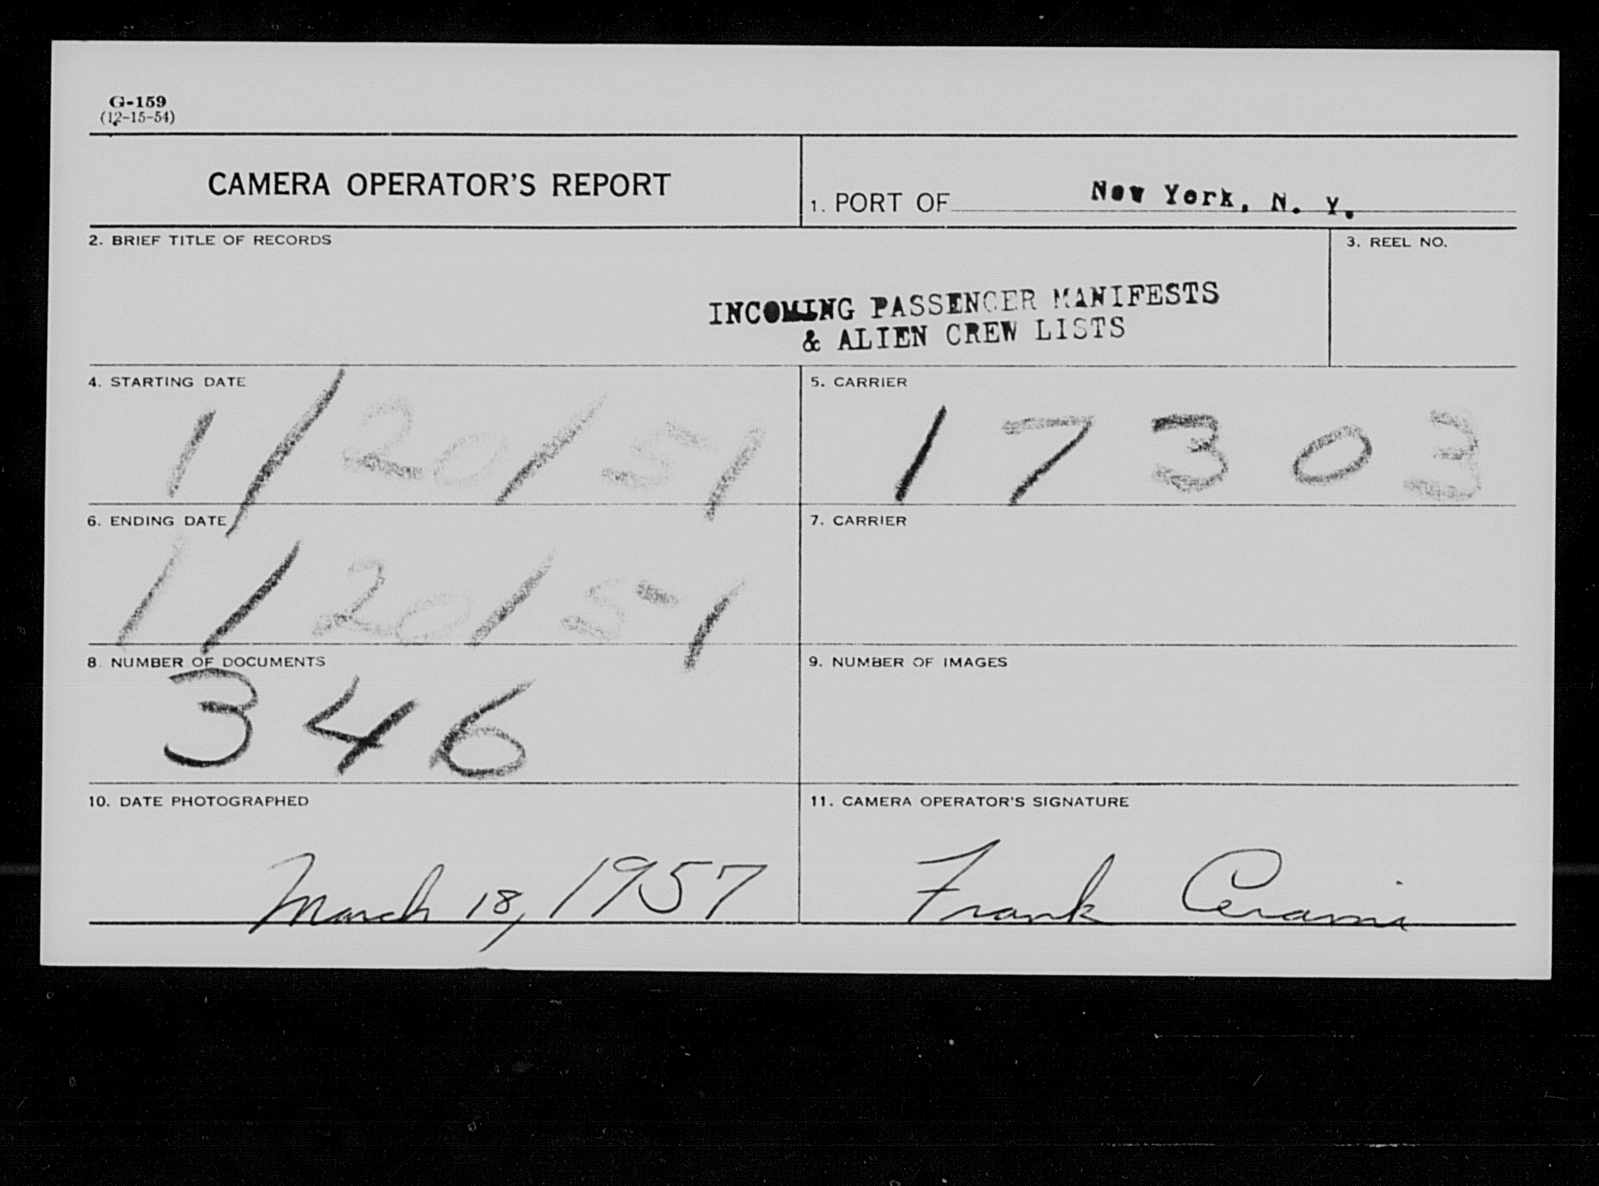 G-159
(12-15-54)
CAMERA OPERATOR'S REPORT
1. PORT OF New York, N. Y.
2. BRIEF TITLE OF RECORDS
INCOMING PASSENGER MANIFESTS
& ALIEN CREW LISTS
3. REEL NO.
4. STARTING DATE
1/20/51
5. CARRIER
17303
6. ENDING DATE
1/20/51
7. CARRIER
8. NUMBER OF DOCUMENTS
346
9. NUMBER OF IMAGES
10. DATE PHOTOGRAPHED
March 18, 1957
11. CAMERA OPERATOR'S SIGNATURE
Frank Cerami